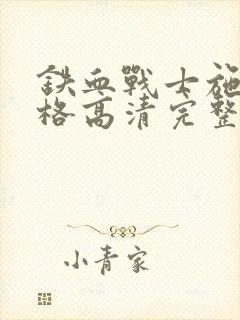 鉄血戰士施
格高清完整
小青家